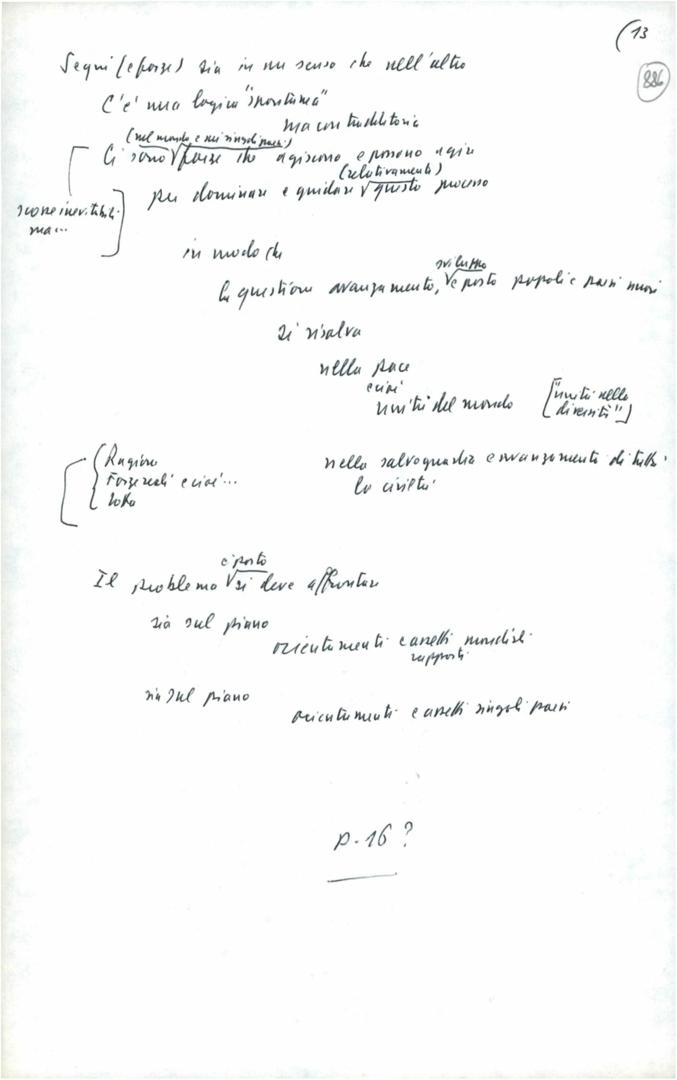 (13
886
Segni (e forze) sia in un senso che nell'altro
C'è una logica "spontanea"
ma contraddittoria
(nel mondo e nei singoli paesi)
Ci sono forze che agiscono e possono agire
(relativamente)
per dominare e guidare questo processo
scosse inevitabili
ma...
in modo che
sviluppo
la questione avanzamento, e posto popoli e paesi nuovi
si risolva
nella pace
e cioè
unità del mondo ["unità nella
diversità"]
nella salvaguardia e avanzamento di tutta
la civiltà
Ragione
Forze reali e cioè...
lotta
è posto
Il problema si deve affrontare
sia sul piano
orientamenti e assetti mondiali
rapporti
sia sul piano
orientamenti e assetti singoli paesi
p. 16?